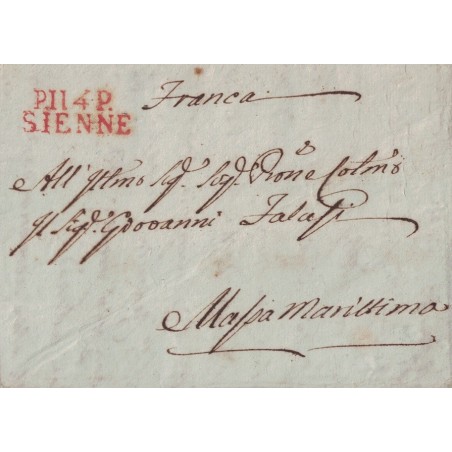 P.114.P.
SIENNE
Franca
All' Illmo Sigr. Sigr. Prõne Colmo
Il Sigr. Giovanni Falassi
Massa Marittima